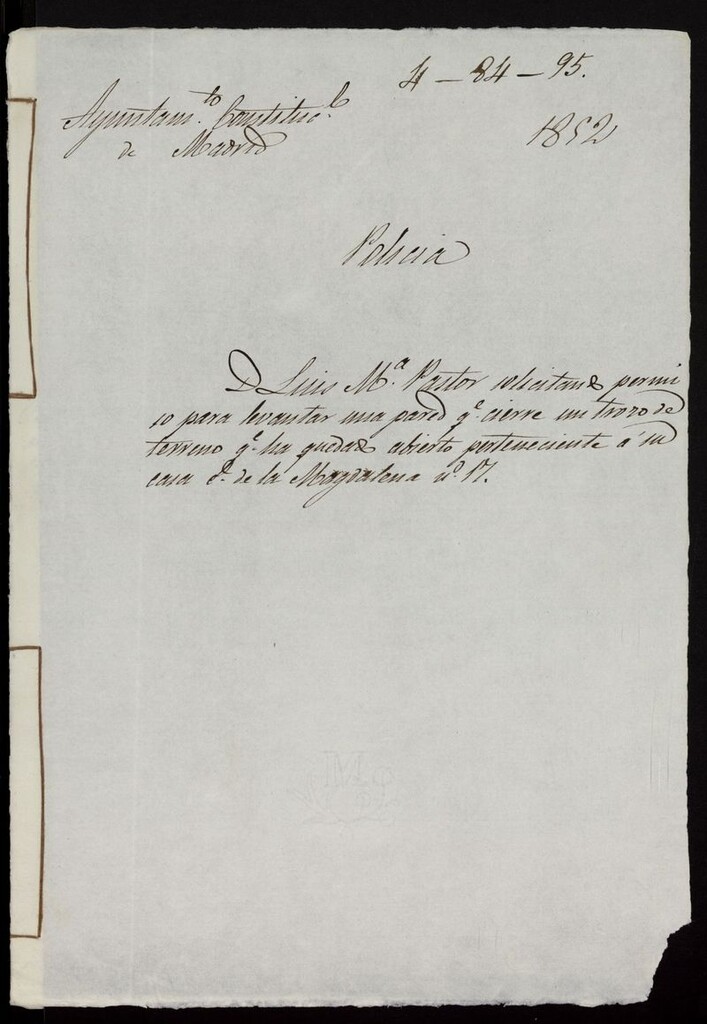 4 - 84 - 95.
Ayuntam.to Constituc.l
de Madrid
1852
Policia
D Luis M.a Pastor solicitando permi
so para levantar una pared q.e cierre un trozo de
terreno q.e ha quedado abierto perteneciente á su
casa C.e de la Magdalena n.o 17.